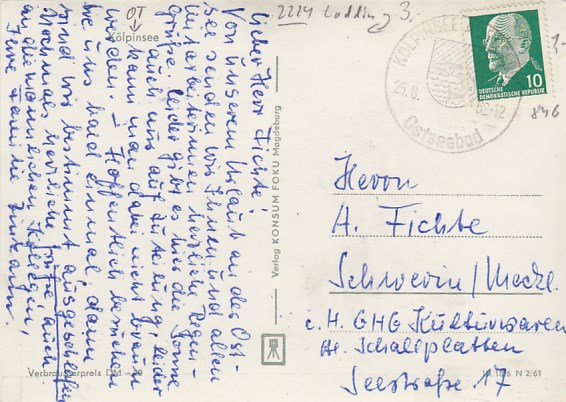 OT
2224 Loddin
3.
Kölpinsee
Lieber Herr Fichte!
Von unserem Urlaub an der Ost-
see senden wir Ihnen und allen
Mitarbeitern herzliche Regen-
grüße. Leider gibt es hier die Sonne
auch nur auf Zuteilung, leider
kann man dabei nicht braun
werden. – Hoffentlich beziehen
wie uns bald einmal, dann
sind wir bestimmt ausgeschlafen
Nochmals herzliche Grüße auch
an die männlichen Kollegen,
Ihre Familie
Verbraucherpreis DM –,20
Verlag KONSUM FOKU Magdeburg
KÖLPINSEE
Ostseebad
10
DEUTSCHE
DEMOKRATISCHE REPUBLIK
1-
846
Herrn
A. Fichte
Schwerin/Meckl.
c. H. GHG Kulturwaren
Schallplatten
Seestraße 17
N 2/61